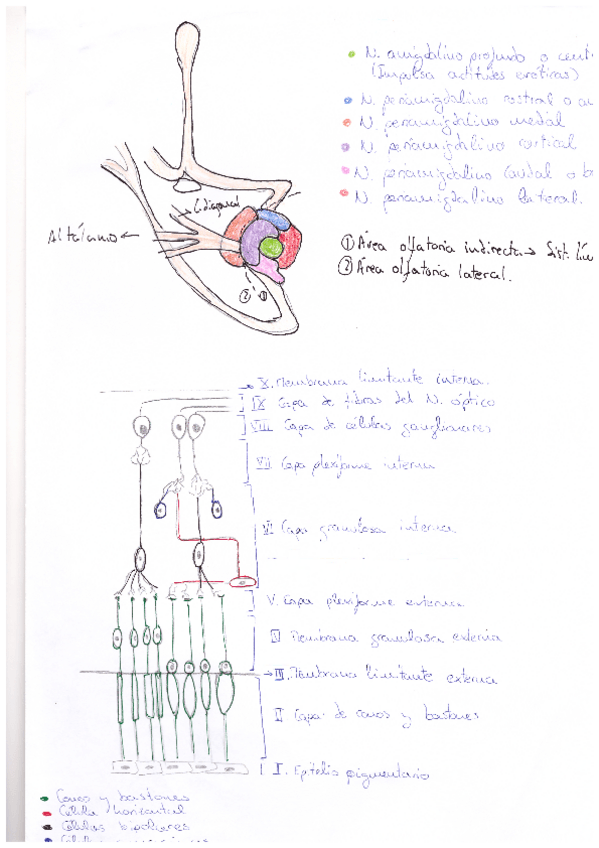 N. amigdalino profundo o cent
(Impulsa actitudes eróticas)
N. periamigdalino rostral o a
N. periamigdalino medial
N. periamigdalino cortical
N. periamigdalino caudal o b
N. periamigdalino lateral.
C. diagonal
Al tálamo ←
① Área olfatoria indirecta → Sist. lí
② Área olfatoria lateral.
② ①
→ X. Membrana limitante interna.
IX Capa de fibras del N. óptico
VIII Capa de células ganglionares
VII Capa plexiforme interna
VI Capa granulosa interna
V. Capa plexiforme externa
Membrana granulosa externa
→ III. Membrana limitante externa
II Capa de conos y bastones
I. Epitelio pigmentario
Conos y bastones
Célula horizontal
Células bipolares